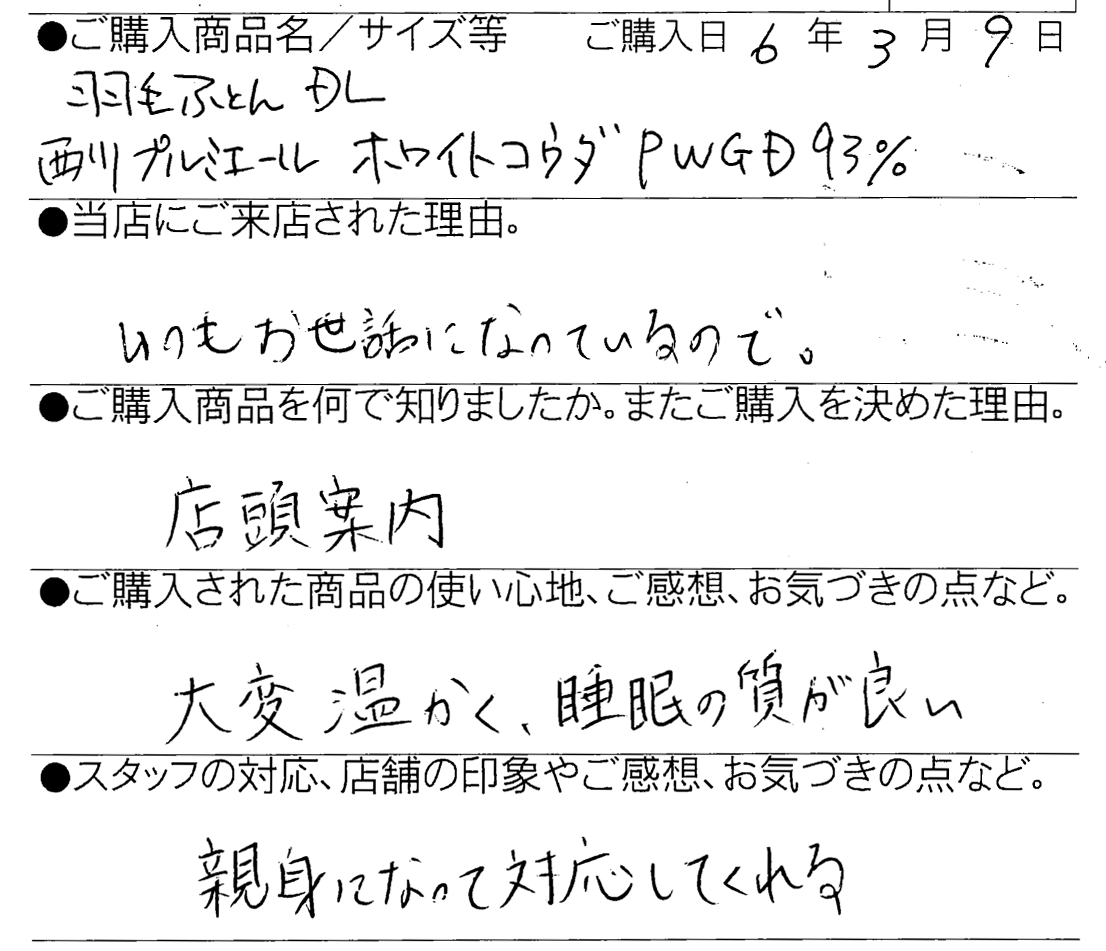 ●ご購入商品名／サイズ等 ご購入日 6 年 3 月 9 日
羽毛ふとん DL
西川プルミエール ホワイトコウダ PWGD 93%
●当店にご来店された理由。
いつもお世話になっているので。
●ご購入商品を何で知りましたか。またご購入を決めた理由。
店頭案内
●ご購入された商品の使い心地、ご感想、お気づきの点など。
大変温かく、睡眠の質が良い
●スタッフの対応、店舗の印象やご感想、お気づきの点など。
親身になって対応してくれる